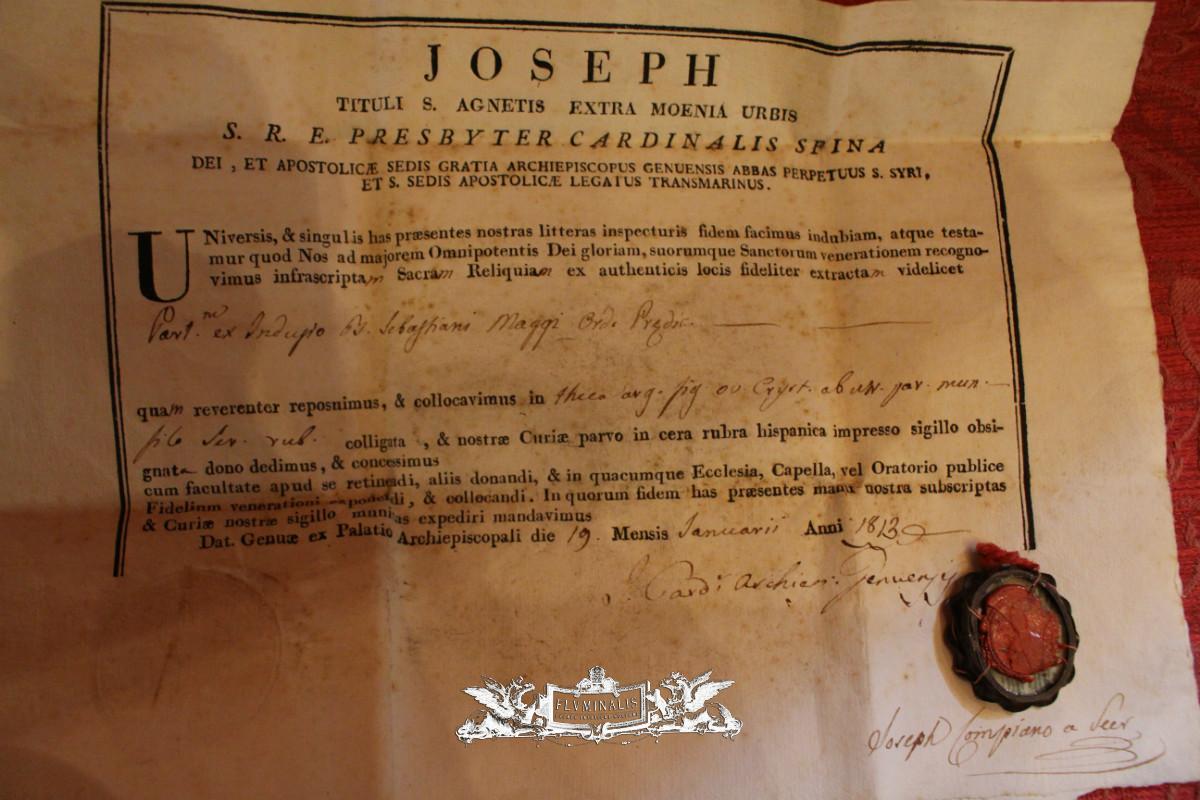 JOSEPH
TITULI S. AGNETIS EXTRA MOENIA URBIS
S. R. E. PRESBYTER CARDINALIS SPINA
DEI, ET APOSTOLICÆ SEDIS GRATIA ARCHIEPISCOPUS GENUENSIS ABBAS PERPETUUS S. SYRI,
ET S. SEDIS APOSTOLICÆ LEGATUS TRANSMARINUS.
UNiversis, & singulis has præsentes nostras litteras inspecturis fidem facimus indubiam, atque testa-
mur quod Nos ad majorem Omnipotentis Dei gloriam, suorumque Sanctorum venerationem recogno-
vimus infrascriptam Sacram Reliquiam ex authenticis locis fideliter extractam videlicet
Part.m ex Indusio B. Sebastiani Maggi Ord. Prędic.
quam reverenter reposuimus, & collocavimus in theca arg. fig ov Cryst. ab un. par. mun.
filo Ser. rub. colligata, & nostræ Curiæ parvo in cera rubra hispanica impresso sigillo obsi-
gnata dono dedimus, & concessimus
cum facultate apud se retinendi, aliis donandi, & in quacumque Ecclesia, Capella, vel Oratorio publice
Fidelium venerationi exponendi, & collocandi. In quorum fidem has præsentes manu nostra subscriptas
& Curiæ nostræ sigillo munitas expediri mandavimus
Dat. Genuæ ex Palatio Archiepiscopali die 19. Mensis Januarii Anni 1813
J. Card. Archiep. Genuensis
FLVMINALIS
Joseph Compiano a Secr